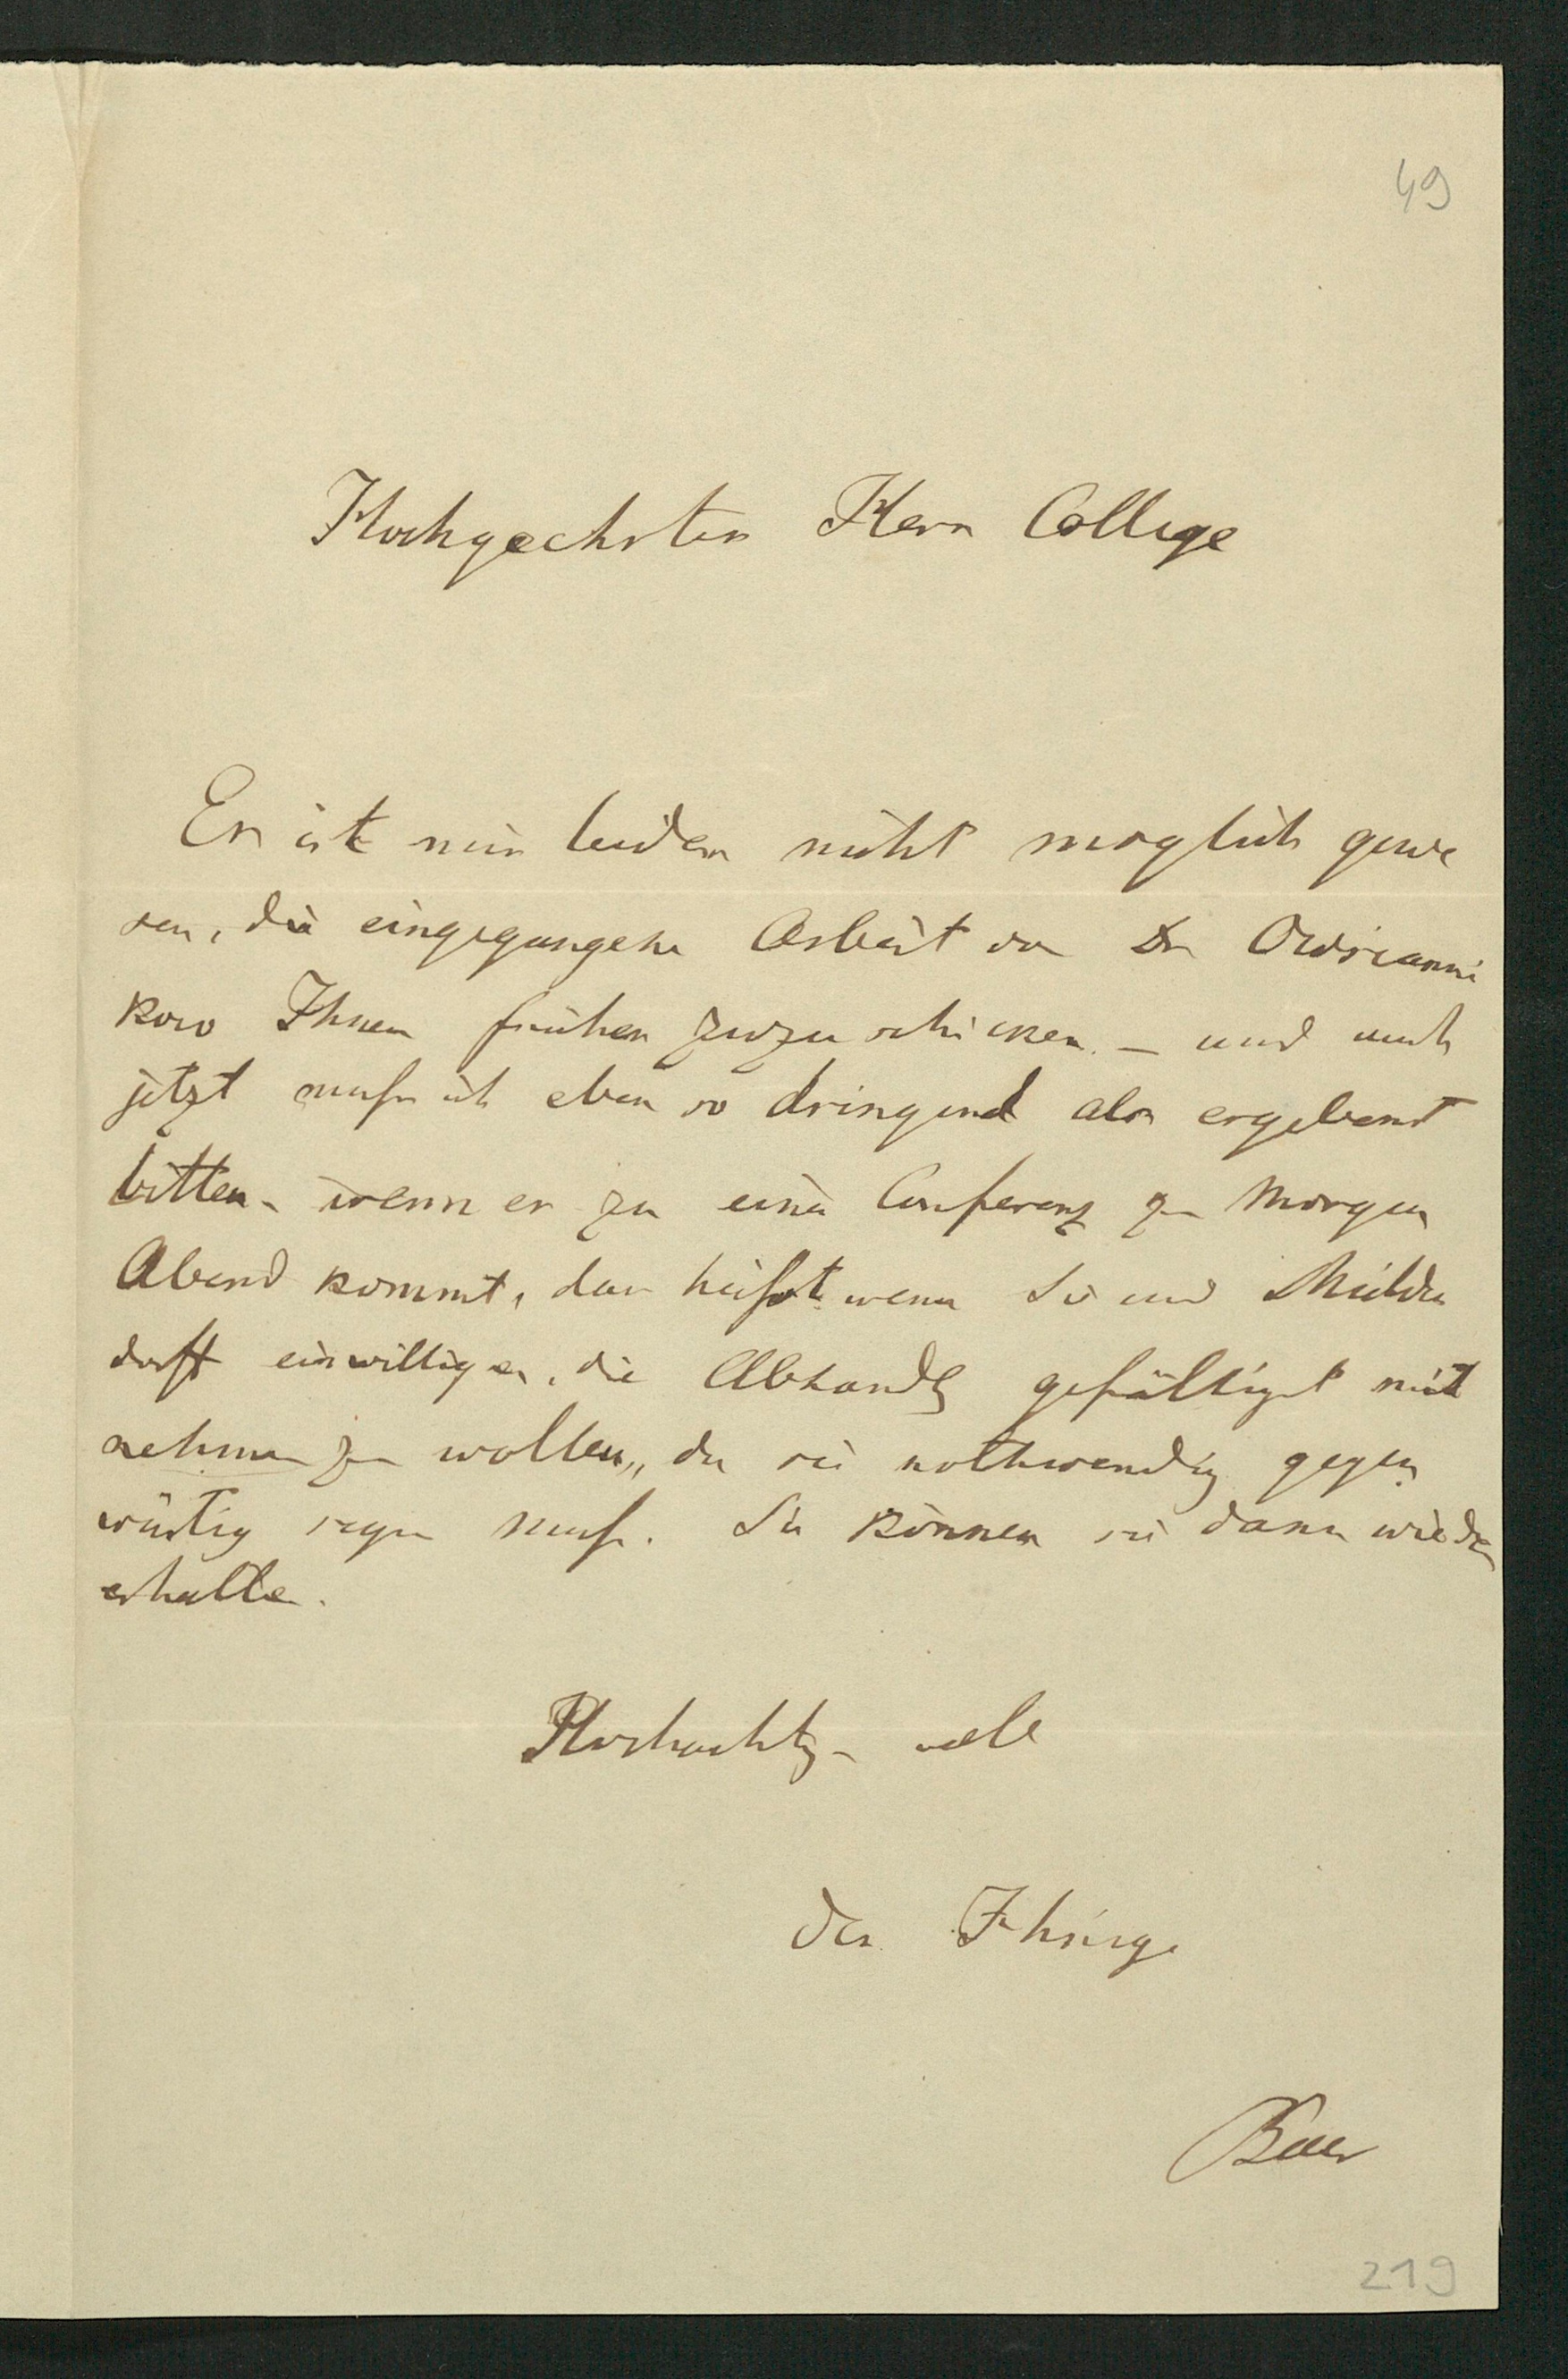 49
Hochgeehrter Herr College
Es ist mir leider nicht moglich gewe
sen, die eingegangene Arbeit von Dr Owsianni
kow Ihnen früher zuzuschicken – und auch
jetzt muss ich eben so dringend als ergebenst
bitten – wenn es zu einer Conferenz zu Morgen
Abend kommt, das heisst wenn Sie und Midden
dorff einwilligen, die Abhandlg gefälligst mit
nehmen zu wollen, da sie nothwendig gegen
wärtig seyn muss. Sie können sie dann wieder
erhalten.
Hochachtgsvoll
der Ihrige
Baer
219